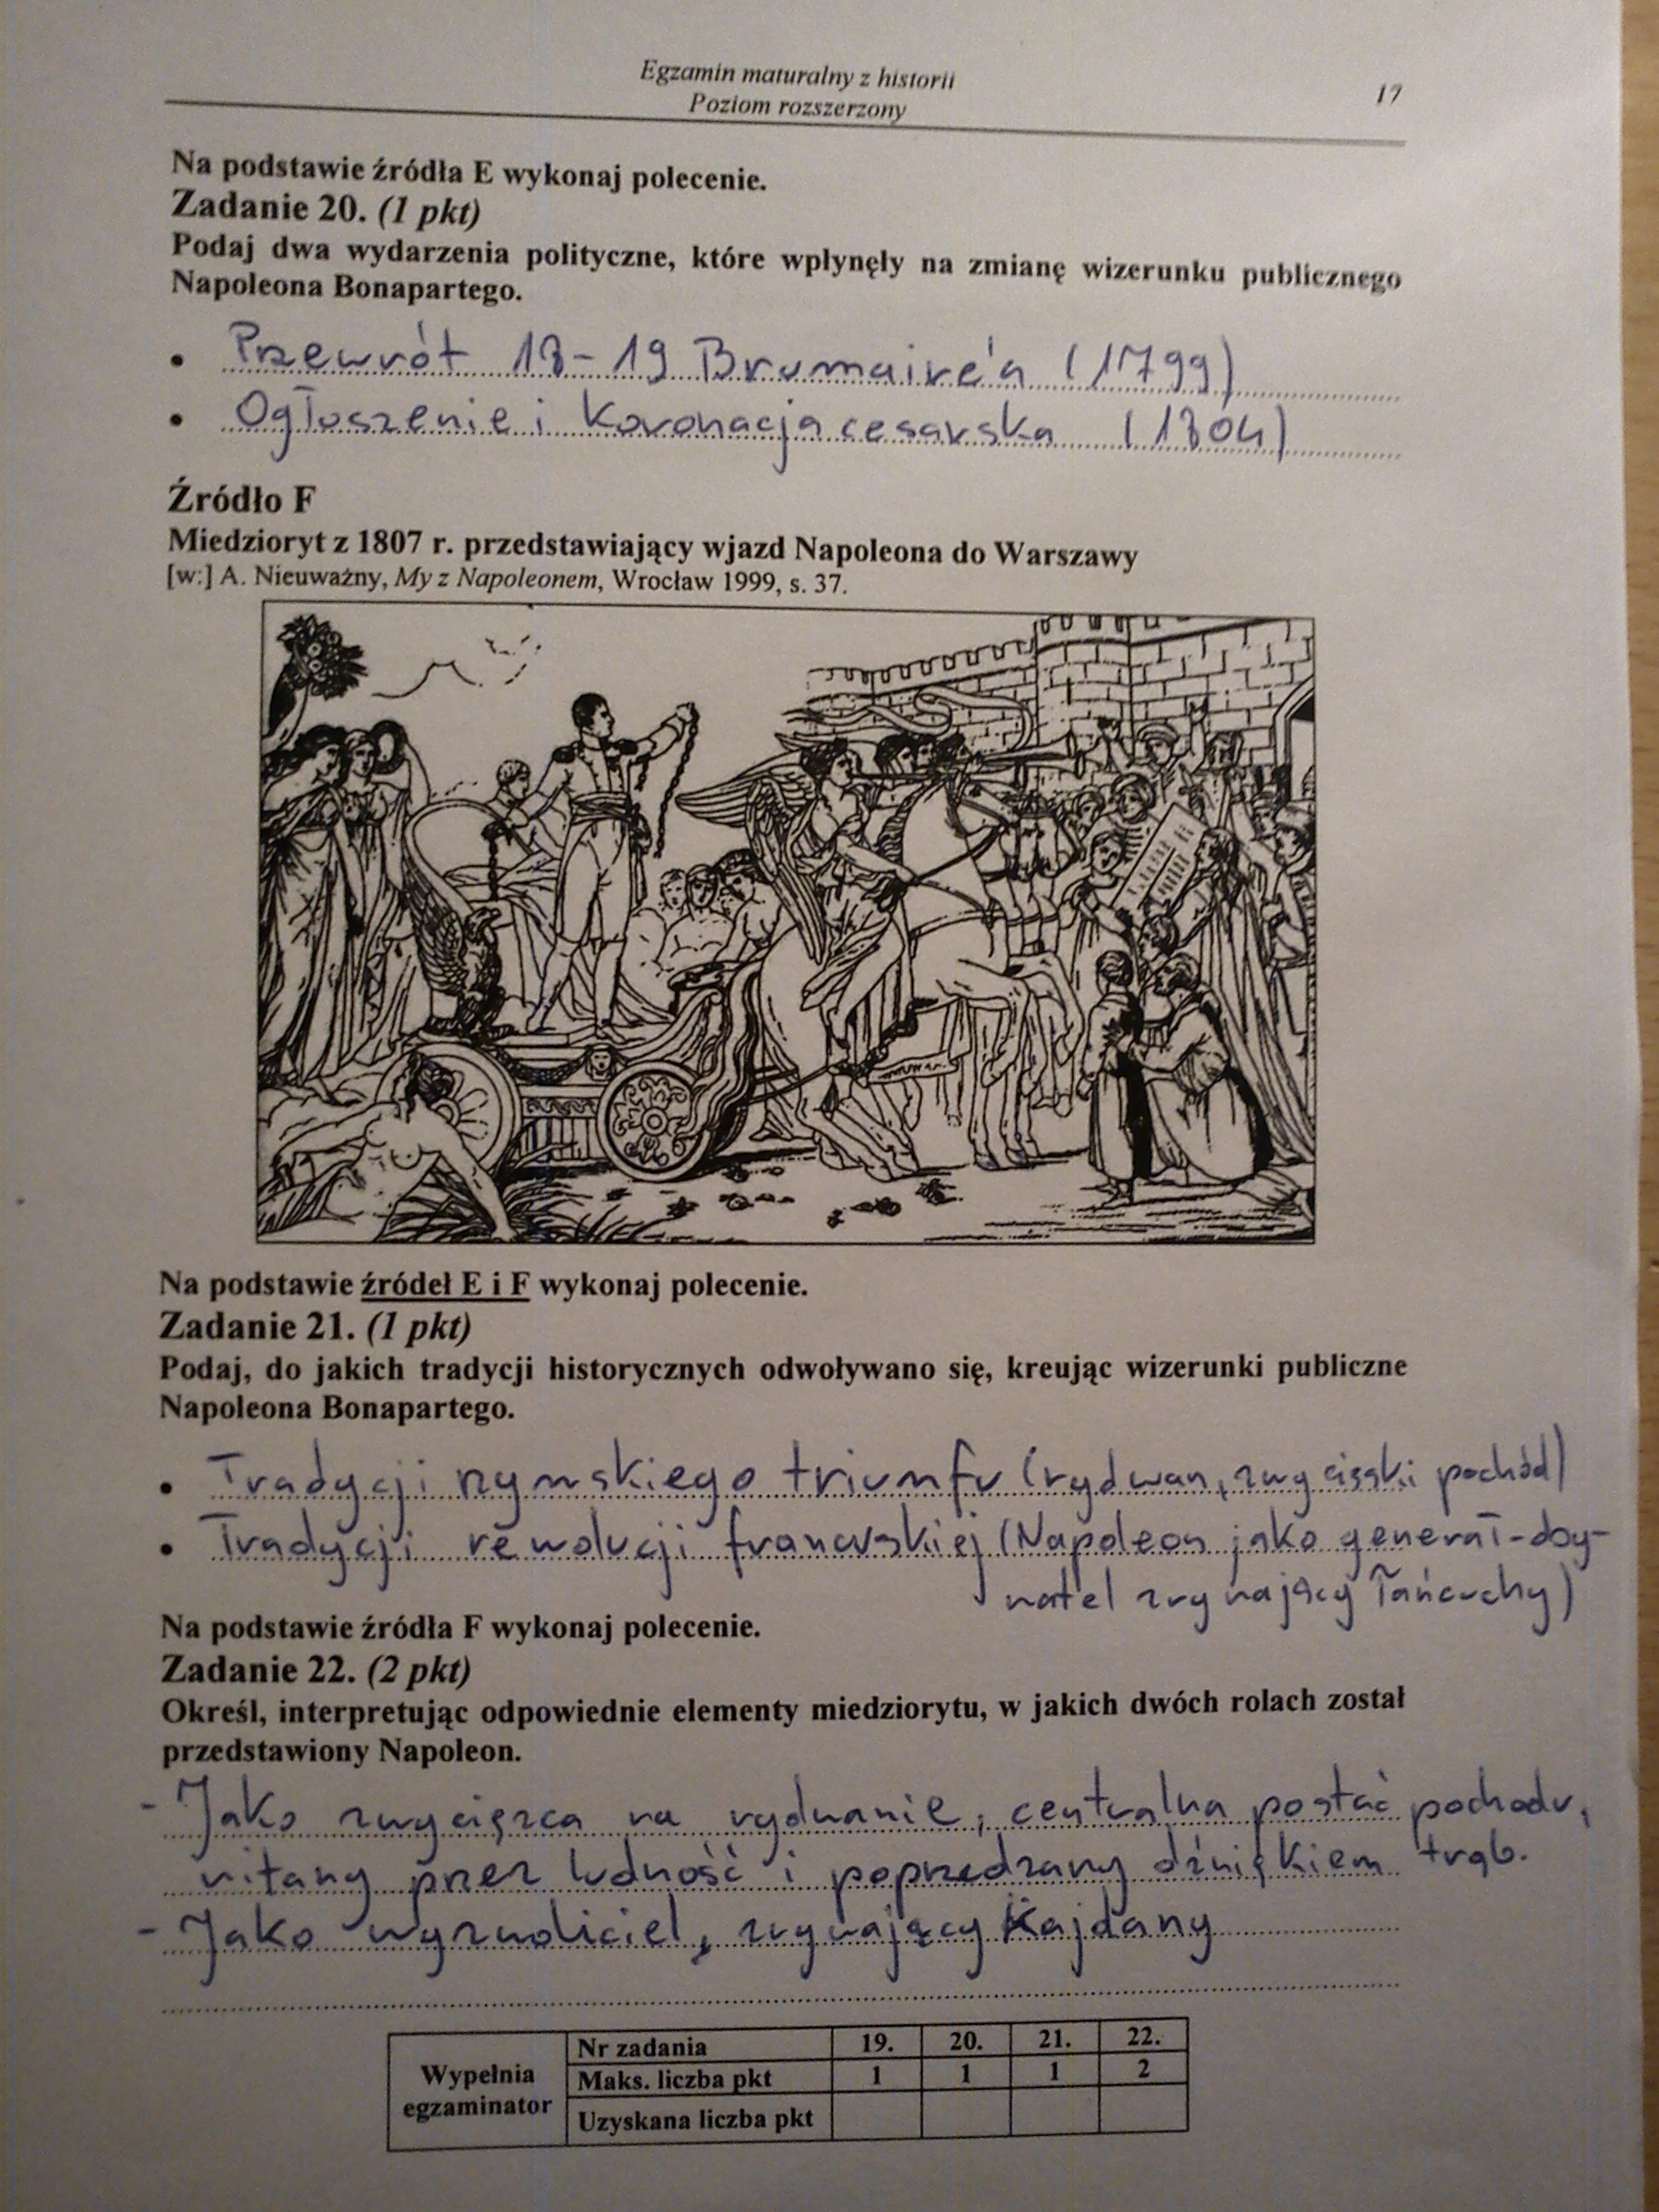 Egzamin maturalny z historii
Poziom rozszerzony
17
Na podstawie źródła E wykonaj polecenie.
Zadanie 20. (1 pkt)
Podaj dwa wydarzenia polityczne, które wpłynęły na zmianę wizerunku publicznego
Napoleona Bonapartego.
• Przewrót 18-19 Brumaire'a (1799)
• Ogłoszenie i koronacja cesarska (1804)
Źródło F
Miedzioryt z 1807 r. przedstawiający wjazd Napoleona do Warszawy
[w:] A. Nieuważny, My z Napoleonem, Wrocław 1999, s. 37.
Na podstawie źródeł E i F wykonaj polecenie.
Zadanie 21. (1 pkt)
Podaj, do jakich tradycji historycznych odwoływano się, kreując wizerunki publiczne
Napoleona Bonapartego.
• Tradycji rzymskiego triumfu (rydwan, zwycięski pochód)
• Tradycji rewolucji francuskiej (Napoleon jako generał-oby-
watel zrywający łańcuchy)
Na podstawie źródła F wykonaj polecenie.
Zadanie 22. (2 pkt)
Określ, interpretując odpowiednie elementy miedziorytu, w jakich dwóch rolach został
przedstawiony Napoleon.
- Jako zwycięzca na rydwanie, centralna postać pochodu,
witany przez ludność i poprzedzany dźwiękiem trąb.
- Jako wyzwoliciel, zrywający kajdany
Wypełnia
egzaminator
Nr zadania 19. 20. 21. 22.
Maks. liczba pkt 1 1 1 2
Uzyskana liczba pkt